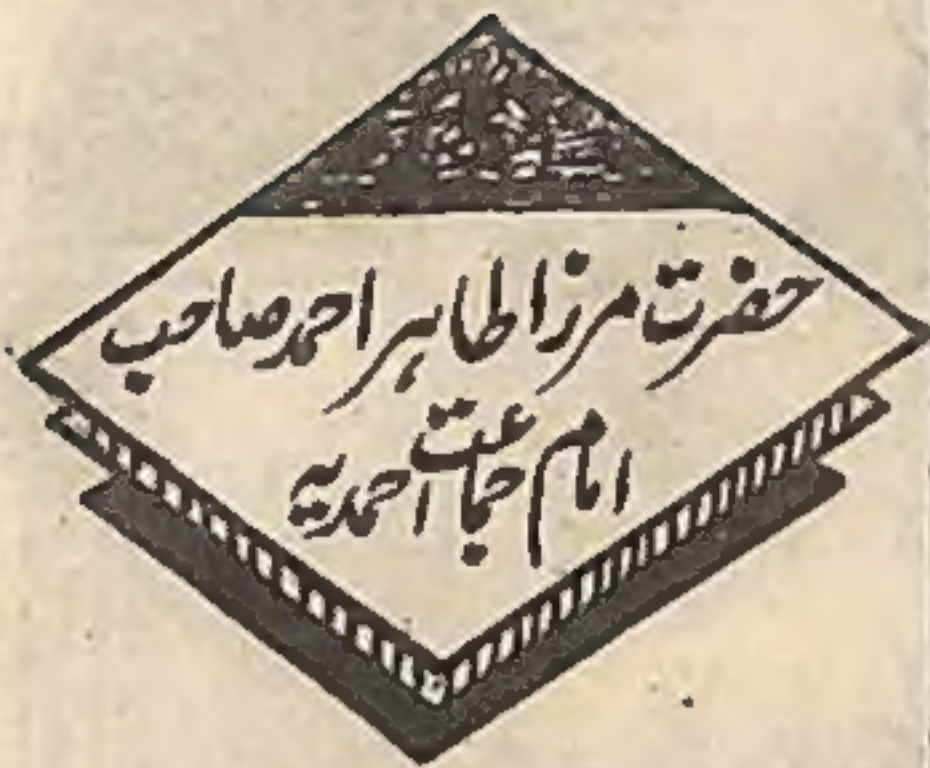 حضرت مرزا طاہر احمد صاحب
امام جماعت احمدیہ